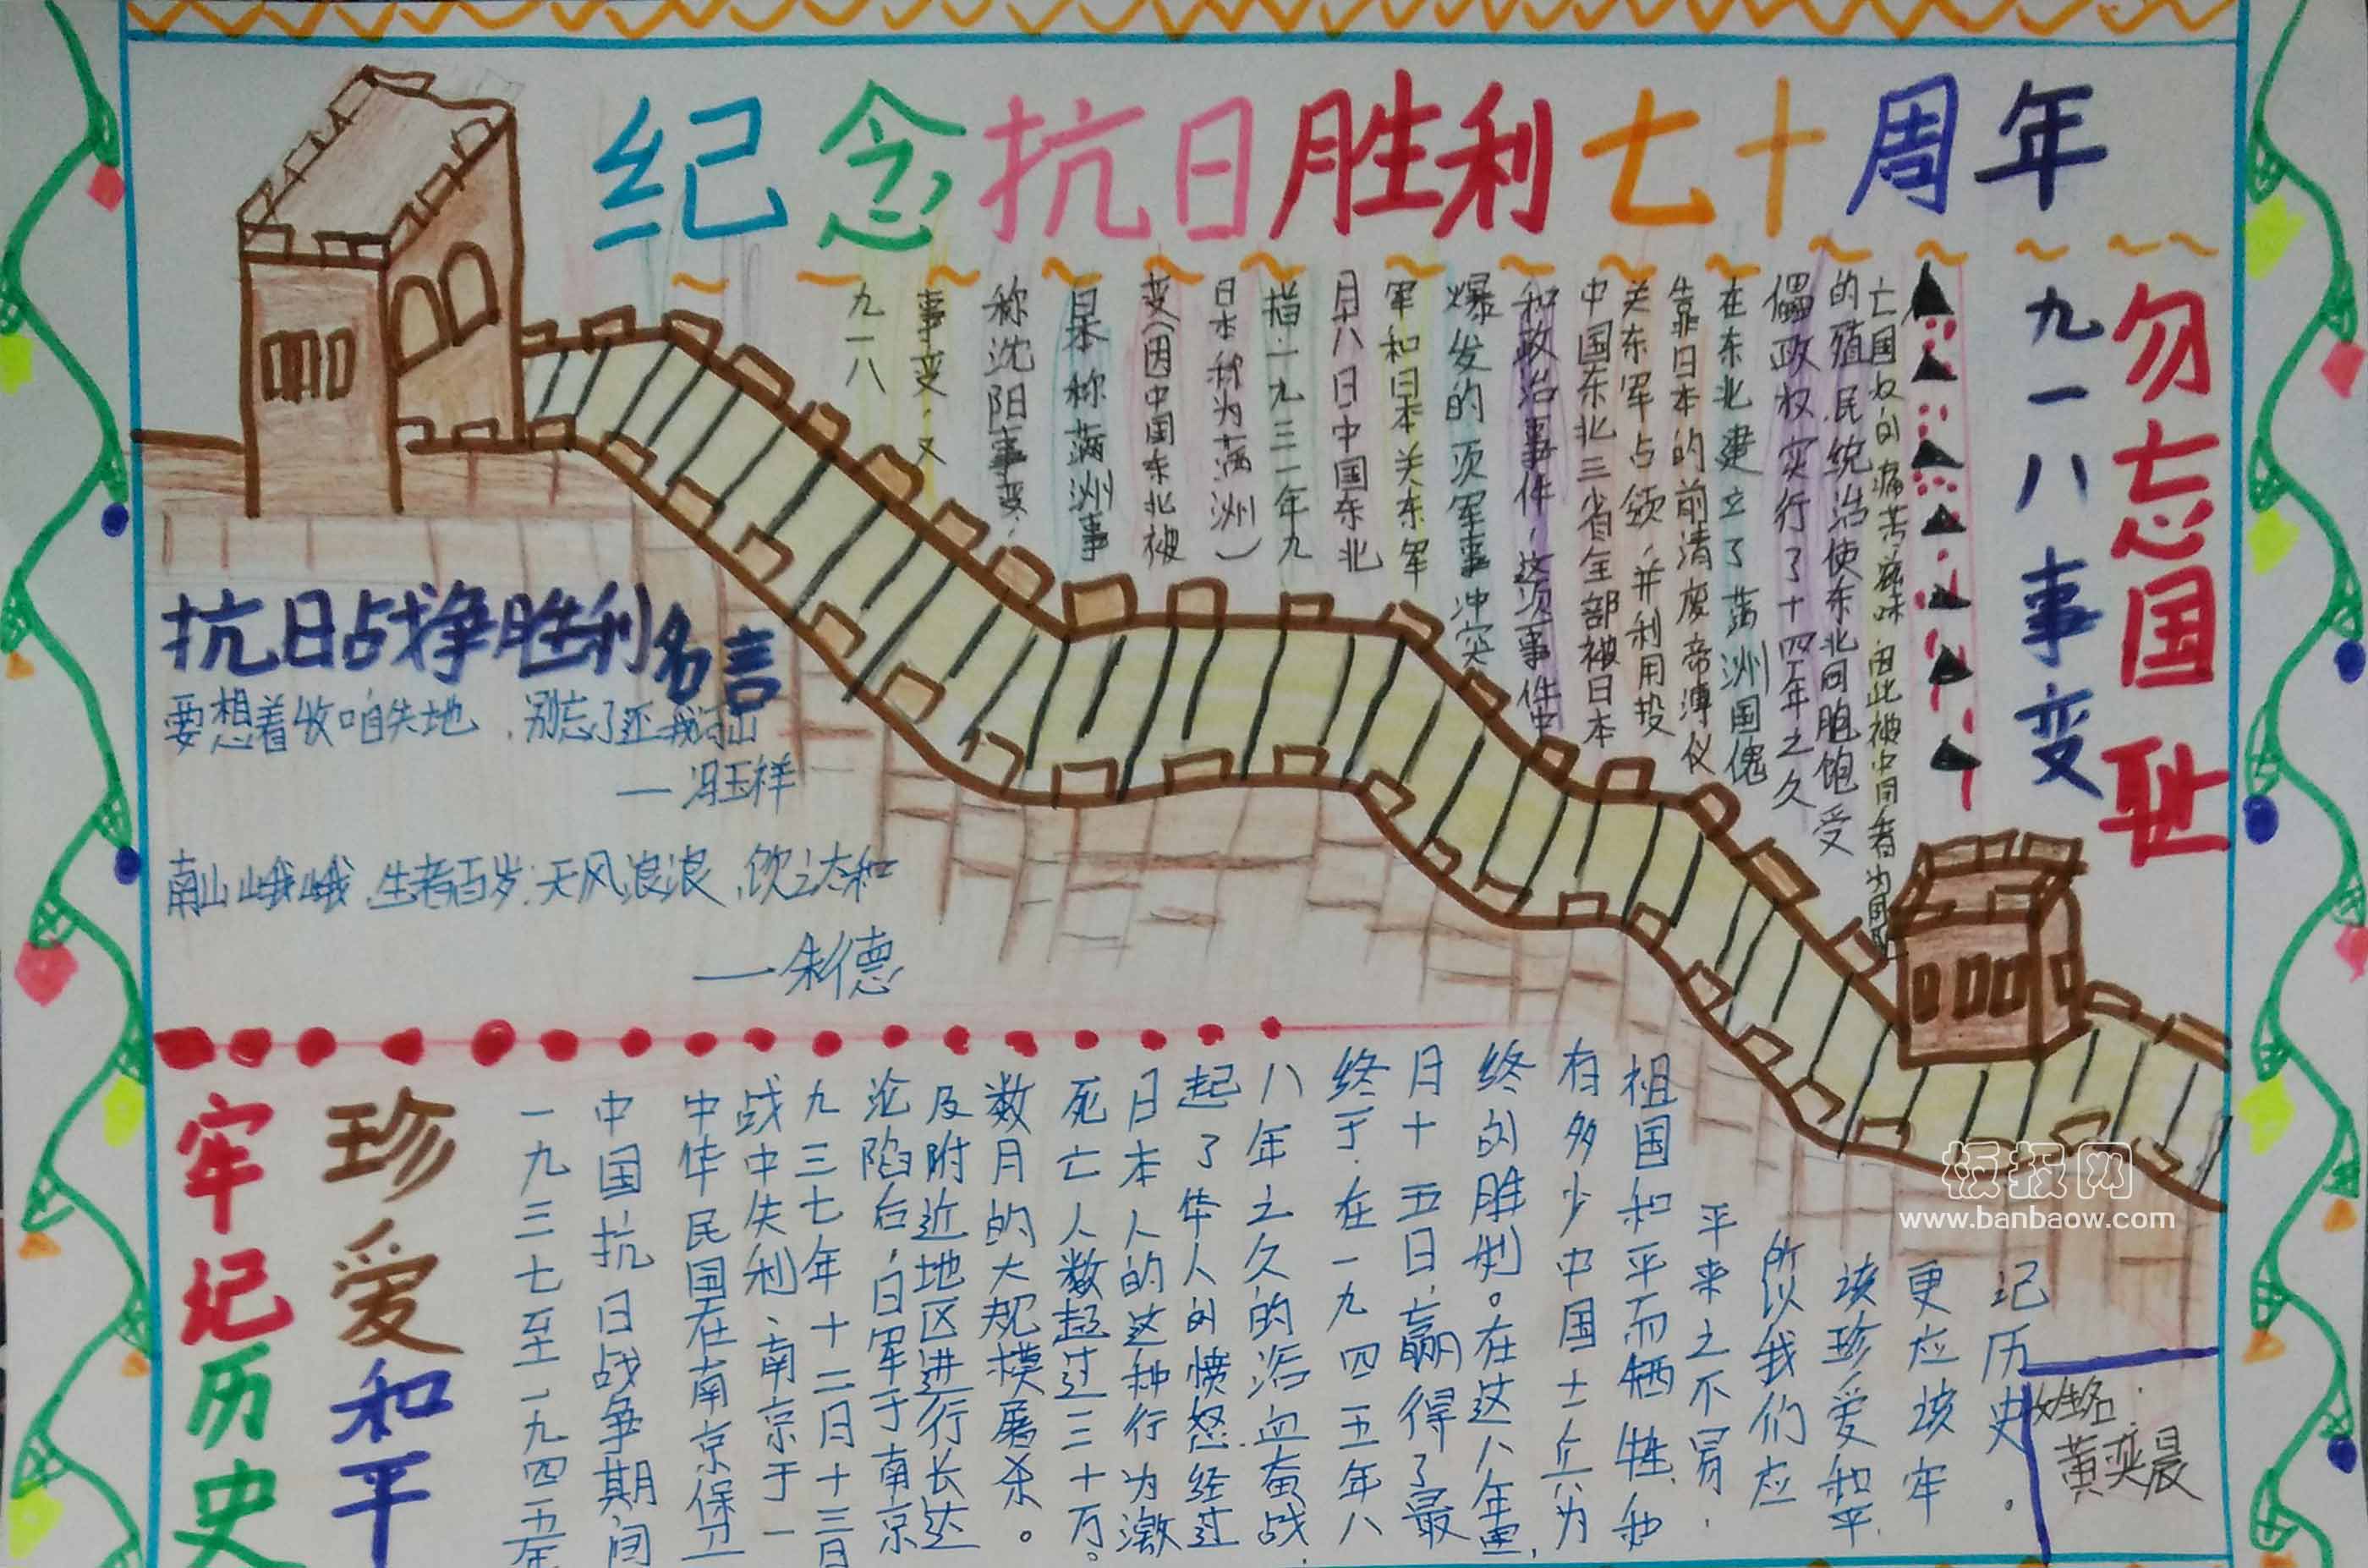 纪念抗日胜利七十周年
勿忘国耻
九一八事变
九一八
事变，又
称沈阳事变，
日本称满洲事
变（因中国东北被
日本称为满洲）
指一九三一年九
月十八日中国东北
军和日本关东军
爆发的一项军事冲突
和政治事件，这项事件中
中国东北三省全部被日本
关东军占领，并利用投
靠日本的前清废帝溥仪
在东北建立了满洲国傀
儡政权实行了十四年之久
的殖民统治使东北同胞饱受
亡国奴的痛苦滋味，由此被中国者为国耻
抗日战争胜利名言
要想着收咱失地，别忘了还我河山
— 冯玉祥
南山峨峨，生者百岁，天风浪浪，饮之太和
——朱德
牢记历史
珍爱和平
一九三七至一九四五年
中国抗日战争期间
中华民国在南京保卫
战中失利、南京于一
九三七年十二月十三日
沦陷后，日军于南京
及附近地区进行长达
数月的大规模屠杀。
死亡人数超过三十万。
日本人的这种行为激
起了华人的愤怒.经过
八年之久的浴血奋战，
终于，在一九四五年八
月十五日，赢得了最
终的胜利。在这八年里，
有多少中国士兵为
祖国和平而牺牲，和
平来之不易，
所以我们应
该珍爱和平，
更应该牢
记历史。
姓名：
黄奕晨
板报网
www.banbaow.com